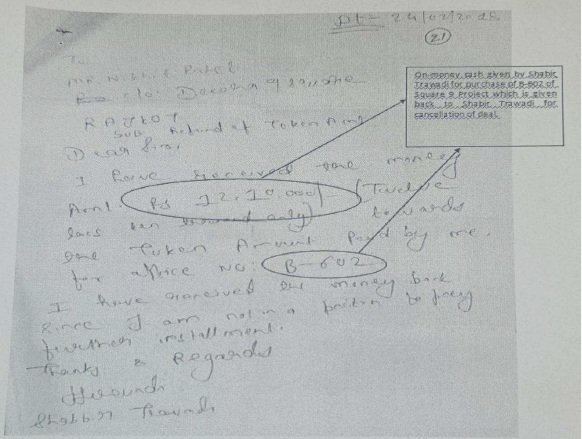 Dt- 24/02/20
21
To
Mr. Nishit Patel
c/o. Decora 9 square
RAJKOT
Sub Refund of Token Amt
Dear Sir,
I have received the money
Amt. Rs 12,10,000/- (Twelve
lacs ten thousand only) towards
the Token Amount paid by me.
for office No: B-602
I have received the money back
Since I am not in a position to pay
further installment.
Thanks & Regards
Shabbir Trawadi
On-money cash given by Shabir
Trawadi for purchase of B-602 of
Square 9 Project which is given
back to Shabir Trawadi for
cancellation of deal.